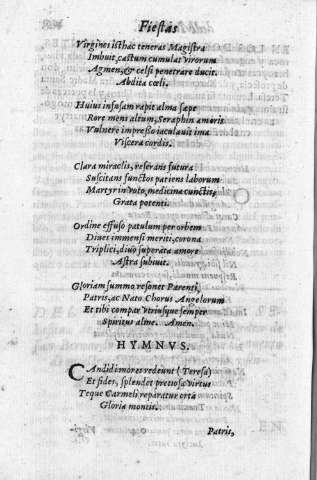 Fiestas
Virgines isthac teneras Magistra
Imbuit, castum cumulat virorum
Agmen, & celsi penetrare ducit
Abdita cœli.
Huius infusam rapit alma sæpe
Rore mens altum, Seraphin amoris
Vulnere impresso iaculauit ima
Viscera cordis.
Clara miraclis, reserans futura
Suscitans functos patiens laborum
Martyr in voto, medicina cunctis,
Grata potenti.
Ordine effuso patulum per orbem
Diues immensi meriti, corona
Triplici, diuo superata amore
Astra subiuit.
Gloriam summo resonet Parenti,
Patris, ac Nato Chorus Angelorum
Et tibi compar vtriusque semper
Spiritus alme. Amen.
HYMNVS.
CAndidi mores redeunt (Teresa)
Et fides, splendet pretiosa virtus
Teque Carmeli reparatur orta
Gloria montis.
Patris,